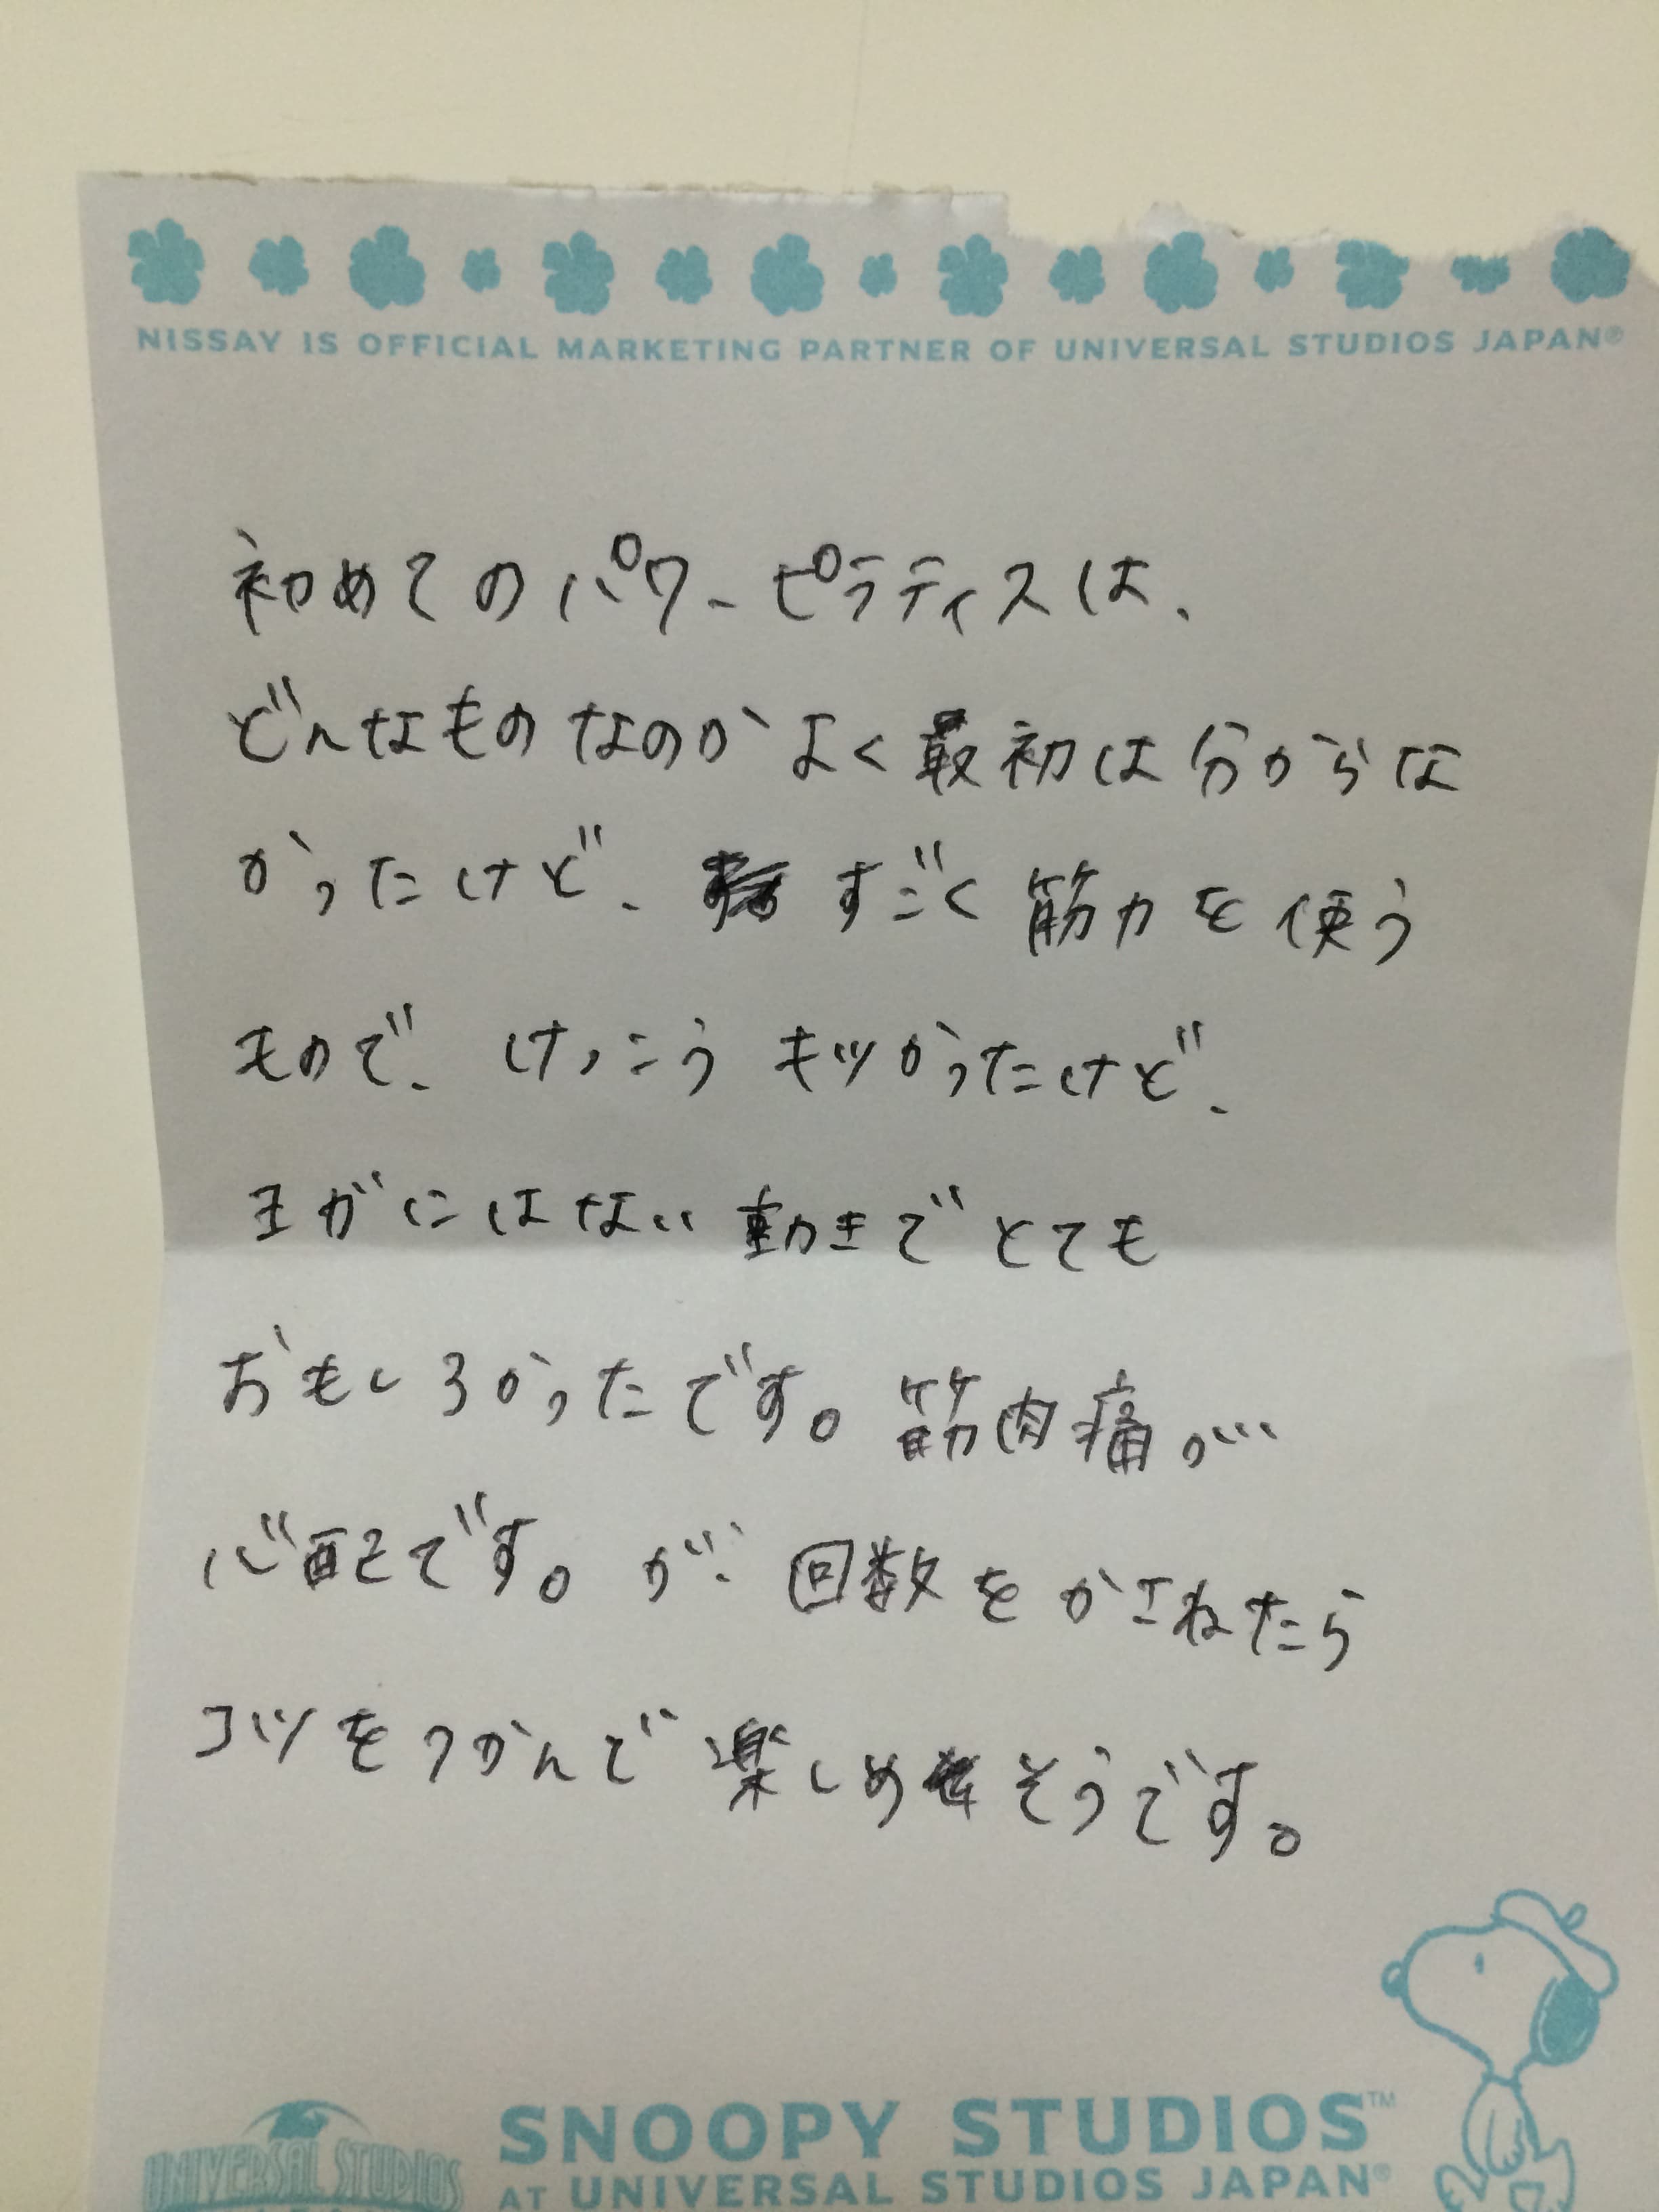 NISSAY IS OFFICIAL MARKETING PARTNER OF UNIVERSAL STUDIOS JAPAN®
初めてのパワーピラティスは、
どんなものなのかよく最初は分からな
かったけど、すごく筋力を使う
もので、けっこうキツかったけど、
ヨガにはない動きでとても
おもしろかったです。筋肉痛が…
心配です。が、回数をかさねたら
コツをつかんで楽しめそうです。
SNOOPY STUDIOS™
UNIVERSAL STUDIOS
AT UNIVERSAL STUDIOS JAPAN®